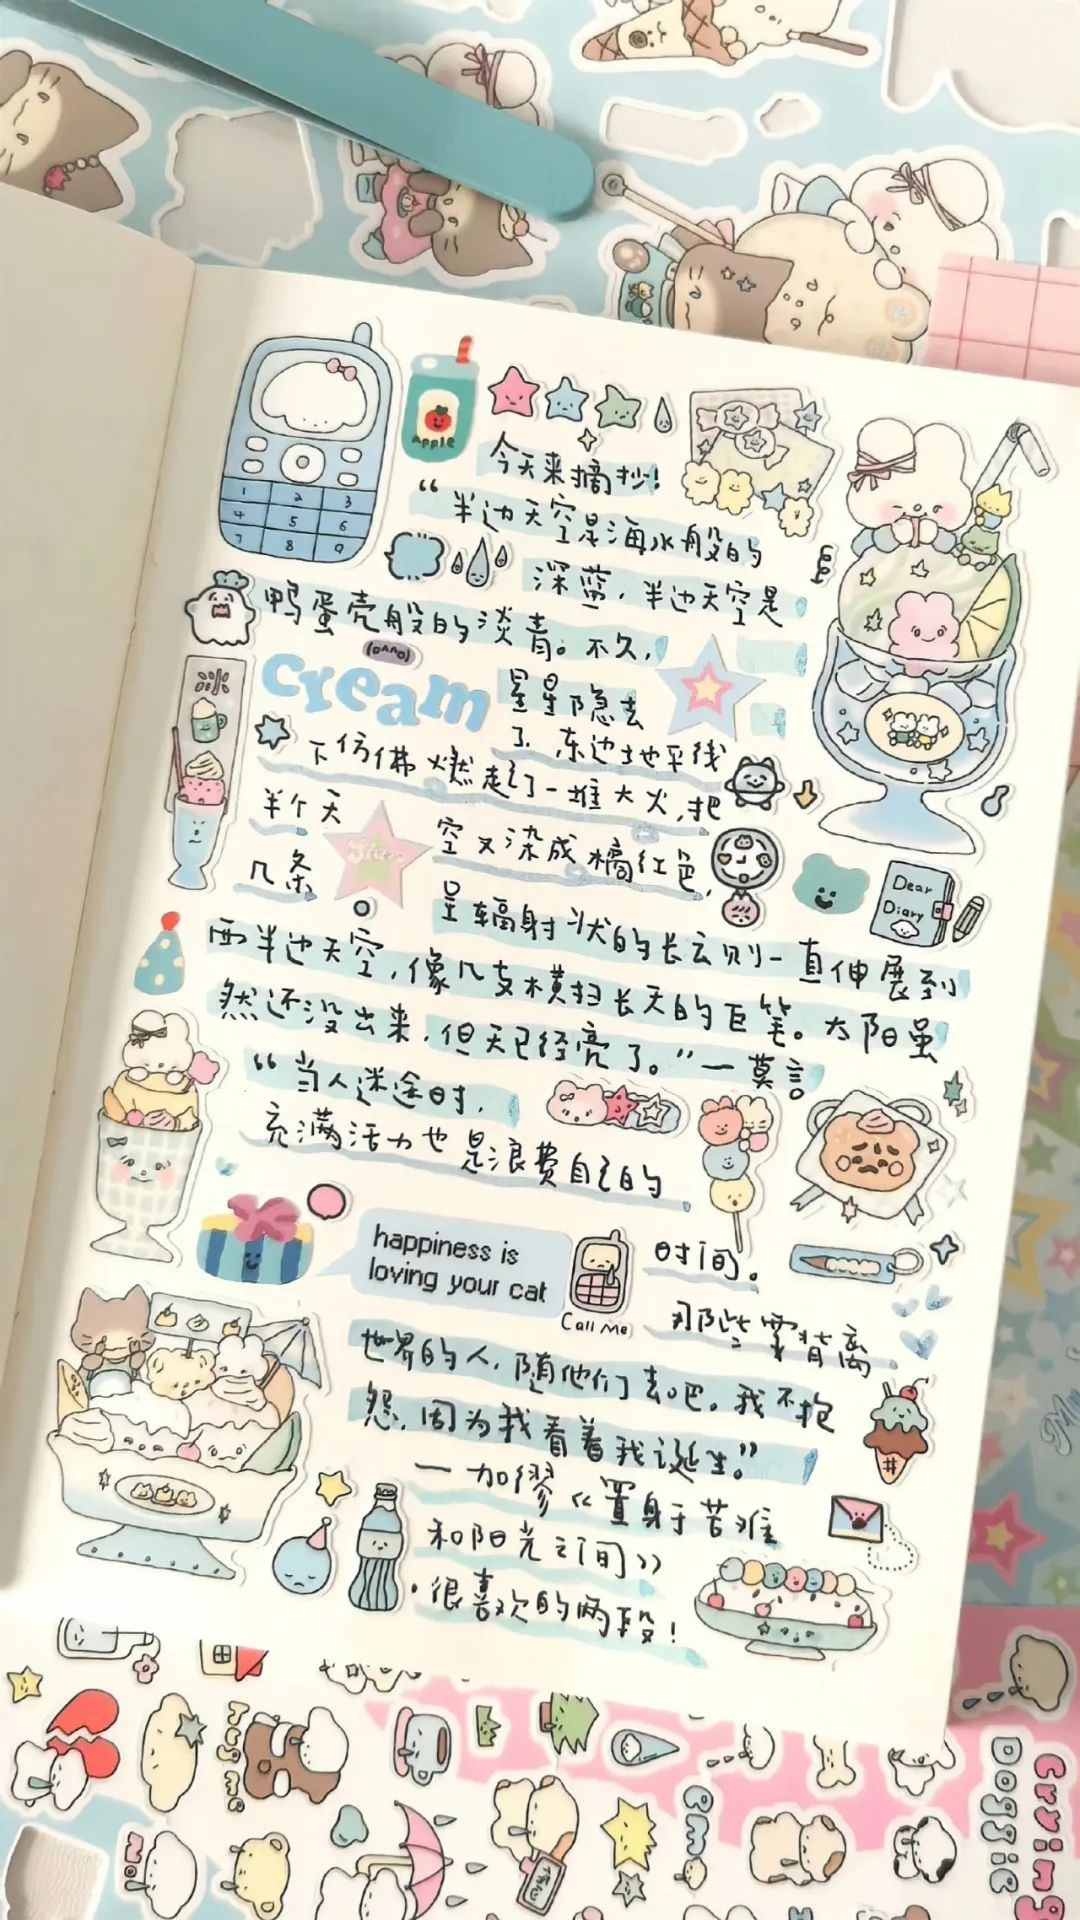 1 2 3
4 5 6
7 8 9
apple
今天来摘抄!
“半边天空是海水般的
深蓝,半边天空是
鸭蛋壳般的淡青。不久,
cream
星星隐去
了,东边地平线
冰
下仿佛燃起了一堆大火,把
半个天
空又染成橘红色,
几条
呈辐射状的长云则一直伸展到
Dear
Diary
西半边天空,像几支横扫长天的巨笔。太阳虽
然还没出来,但天已经亮了。”—莫言
“当人迷途时,
充满活力也是浪费自己的
happiness is
loving your cat
时间。
Call Me
那些要背离
世界的人,随他们去吧。我不抱
怨,因为我看着我诞生。”
—加缪《置身于苦难
和阳光之间》
·很喜欢的两段!
Hug me
Crying
Doggie